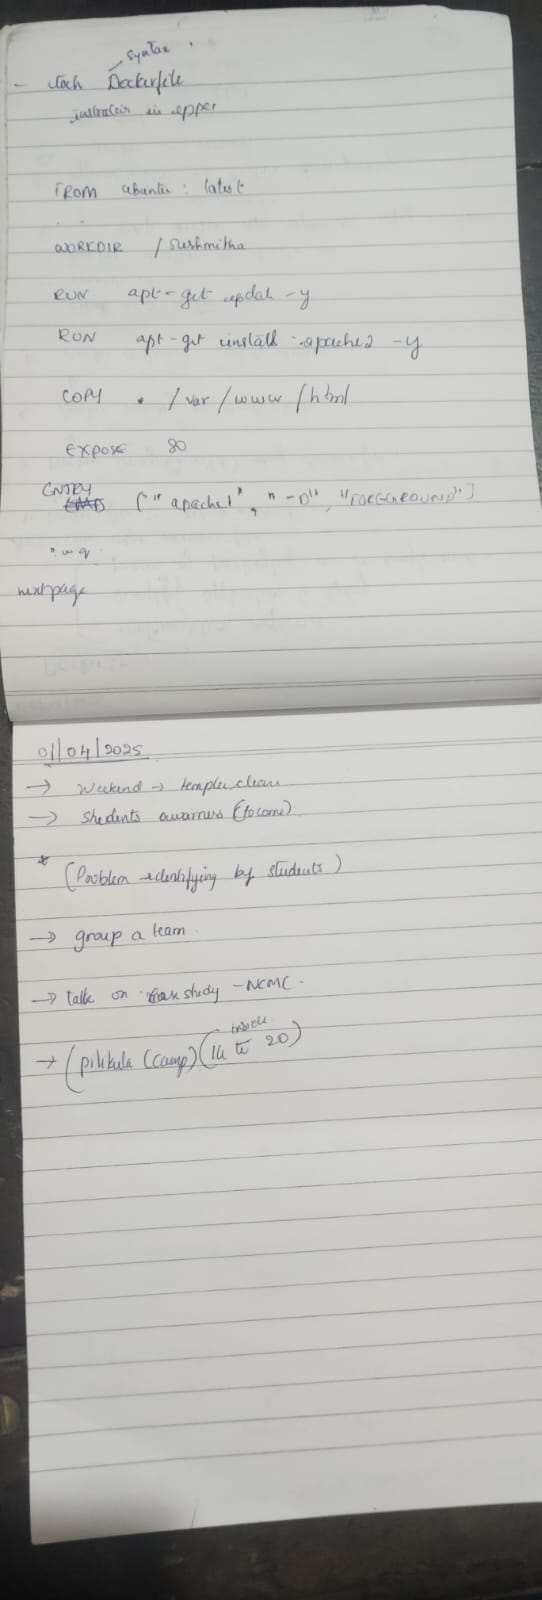 syntax
- touch Dockerfile
instruction in upper
FROM ubuntu : latest
WORKDIR / sushmitha
RUN apt-get update -y
RUN apt-get install apache2 -y
COPY . /var/www/html
EXPOSE 80
ENTRY ["apache1", "-D", "FOREGROUND"]
:wq
next page
01/04/2025
→ Weekend → temple clean
→ Students awarness (to come)
* (Problem identifying by students)
→ group a team
→ talk on case study - NCMC.
inside
→ (pilikula (camp) (14 to 20)